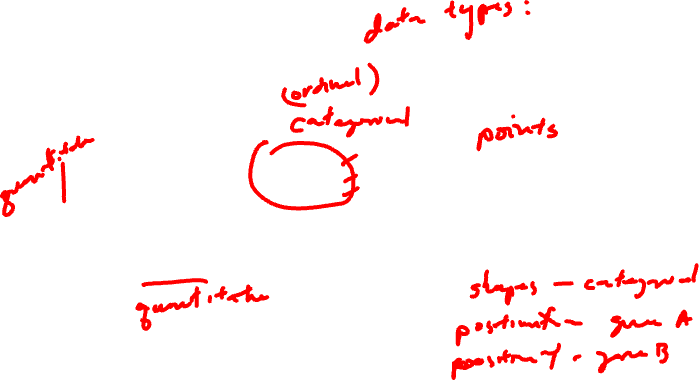 data types:
(ordinal)
categorical
points
quantitative
quantitative
shapes - categorical
position x - gene A
position y - gene B